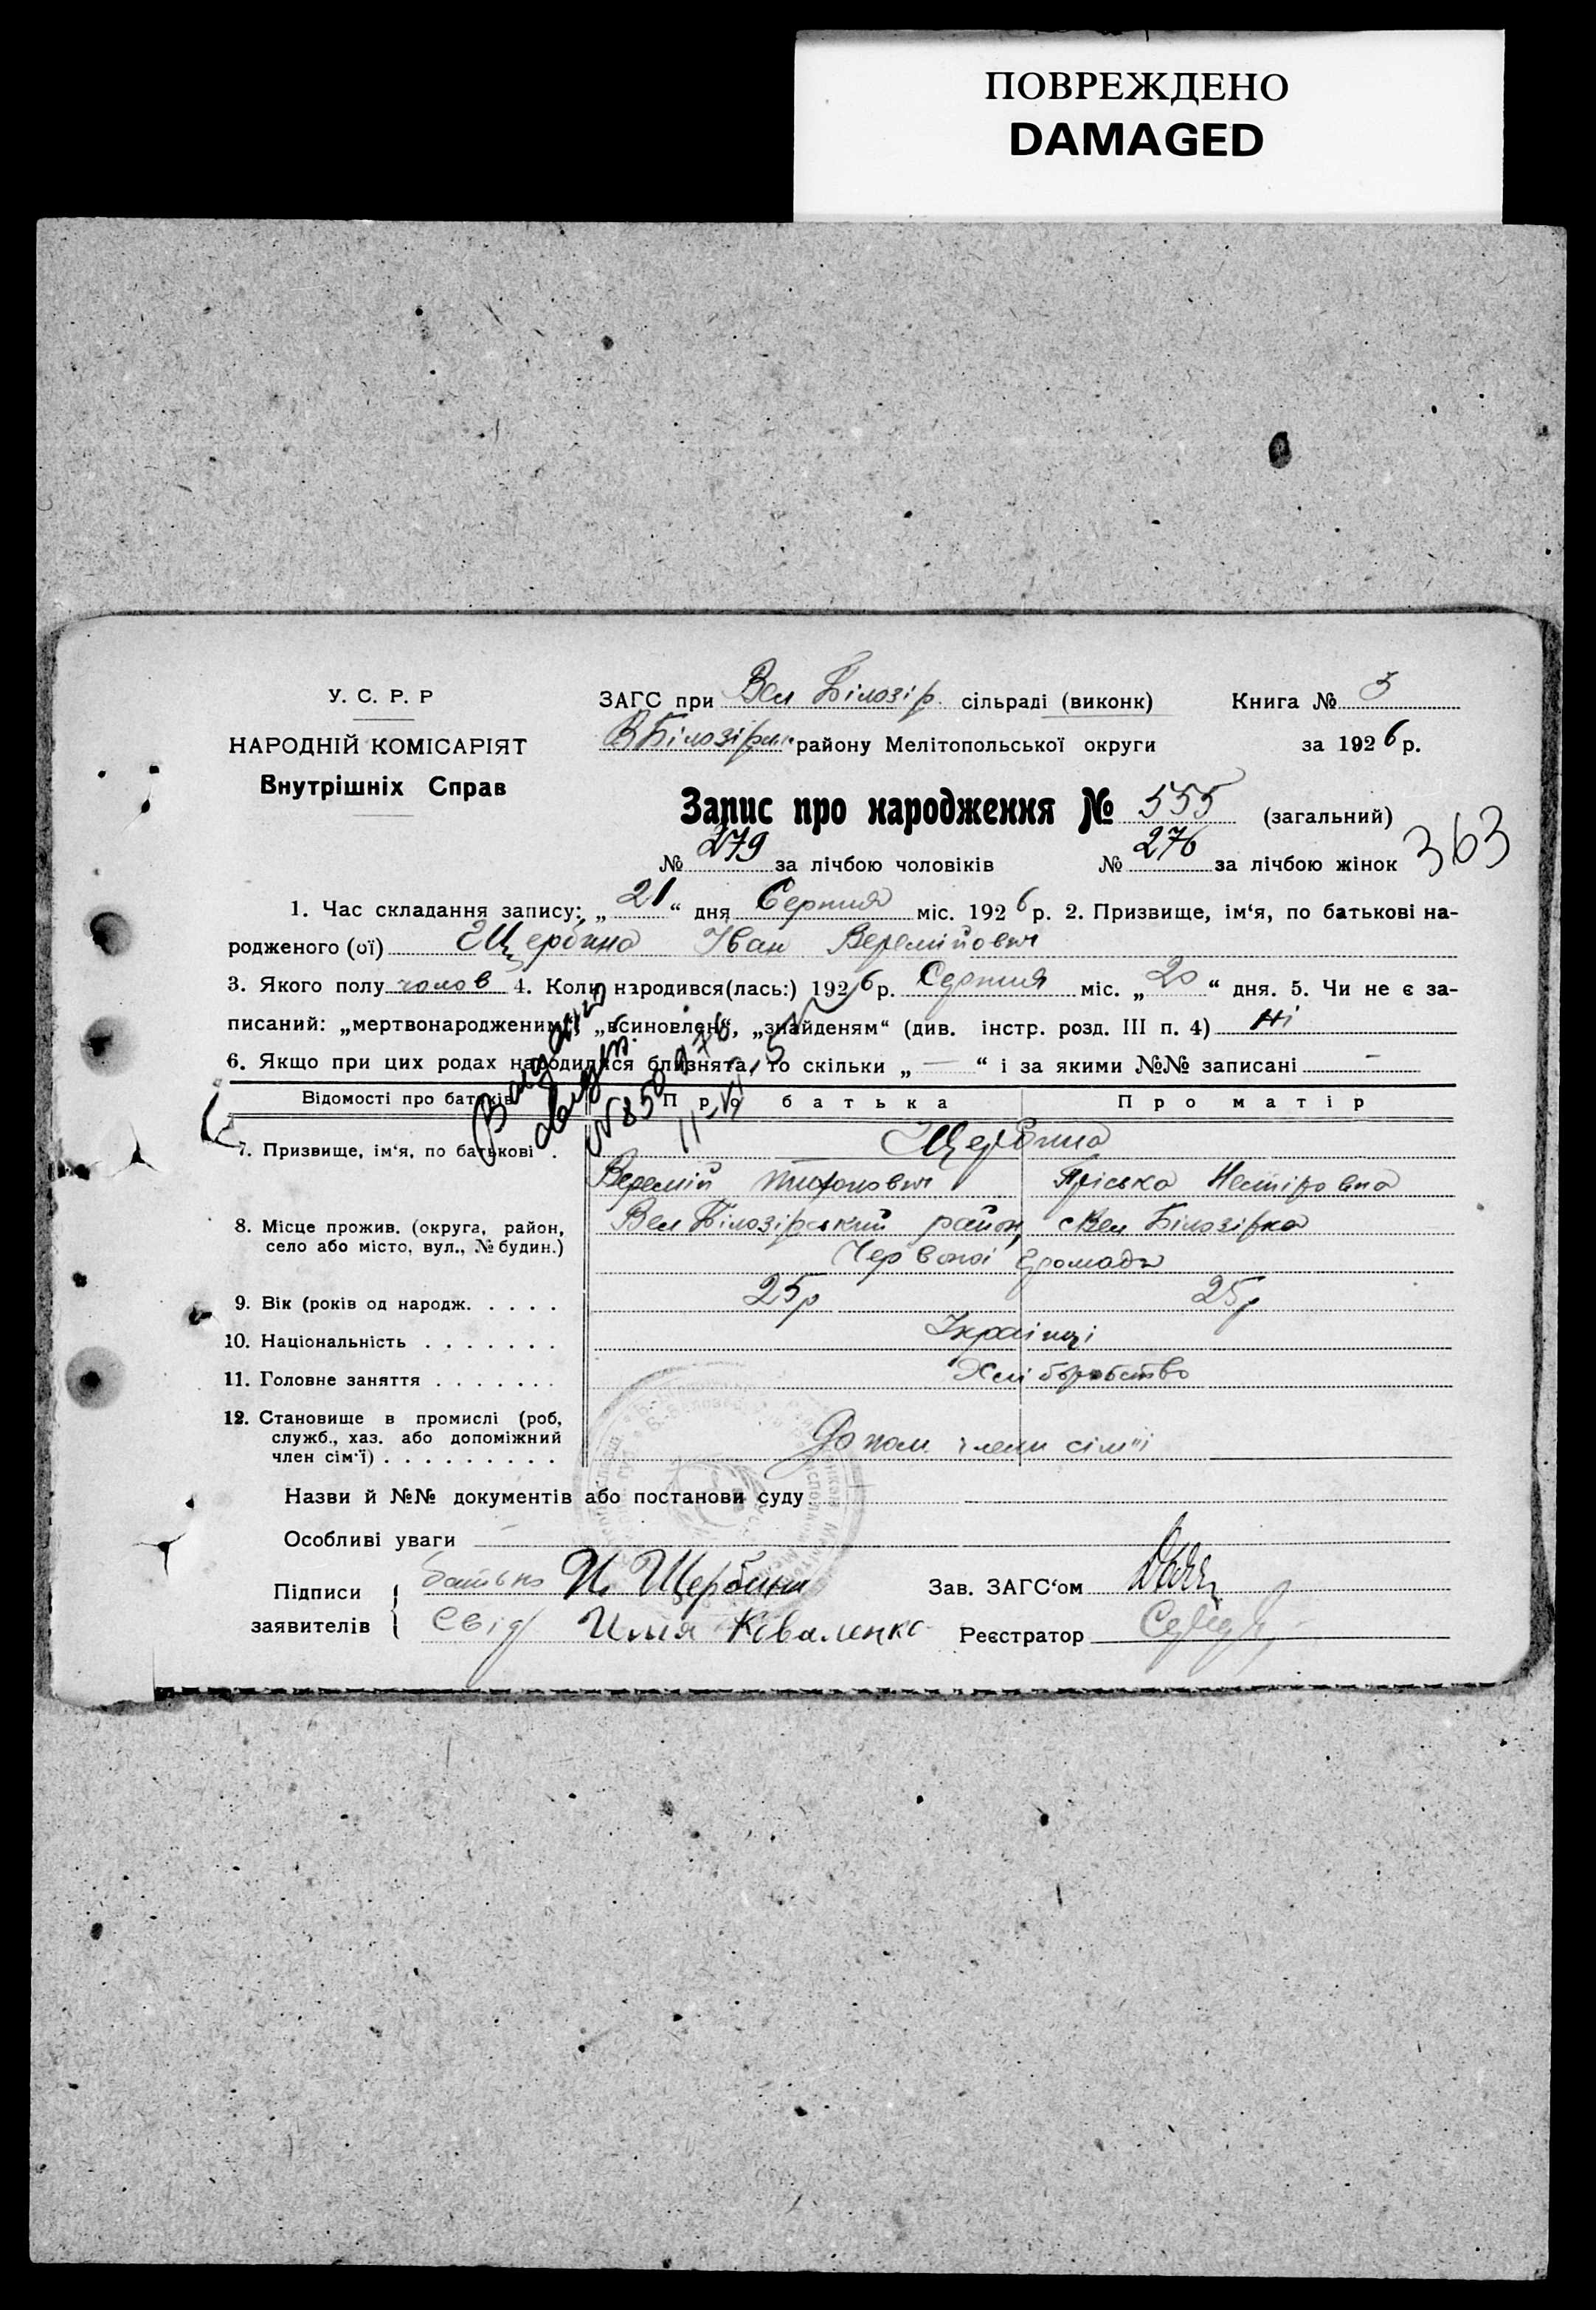 ПОВРЕЖДЕНО
DAMAGED
У. С. Р. Р
НАРОДНІЙ КОМІСАРІЯТ
Внутрішніх Справ
ЗАГС при Вел Білозір. сільраді (виконк) Книга № 3
В Білозірськ. району Мелітопольської округи за 1926 р.
Запис про народження № 555 (загальний)
№ 279 за лічбою чоловіків № 276 за лічбою жінок 363
1. Час складання запису: „21“ дня Серпня міс. 1926 р. 2. Призвище, ім‘я, по батькові на-
родженого (ої) Щербина Іван Веремійович
3. Якого полу чолов 4. Коли народився(лась:) 1926 р. Серпня міс. „20“ дня. 5. Чи не є за-
писаний: „мертвонародженим“, „всиновлен“, „знайденям“ (див. інстр. розд. III п. 4) Ні
6. Якщо при цих родах народилися близнята, то скільки „ — “ і за якими №№ записані —
Відомості про батьків Про батька Про матір
7. Призвище, ім‘я, по батькові . Щербина
Веремій Тихонович Пріська Нестіровна
8. Місце прожив. (округа, район, село або місто, вул., № будин.) Вел Білозірський район, с Вел Білозірка
Червоної Громади
9. Вік (років од народж. . . . . 25 р 25 р
10. Національність . . . . . . . Українці
11. Головне заняття . . . . . . . Хліборобство
12. Становище в промислі (роб,
служб., хаз. або допоміжний
член сім‘ї) . . . . . . . . . Допом. члени сім'ї
Назви й №№ документів або постанови суду
Особливі уваги
Підписи батько И. Щербина Зав. ЗАГС‘ом
заявителів Свід Илия Коваленко Реєстратор